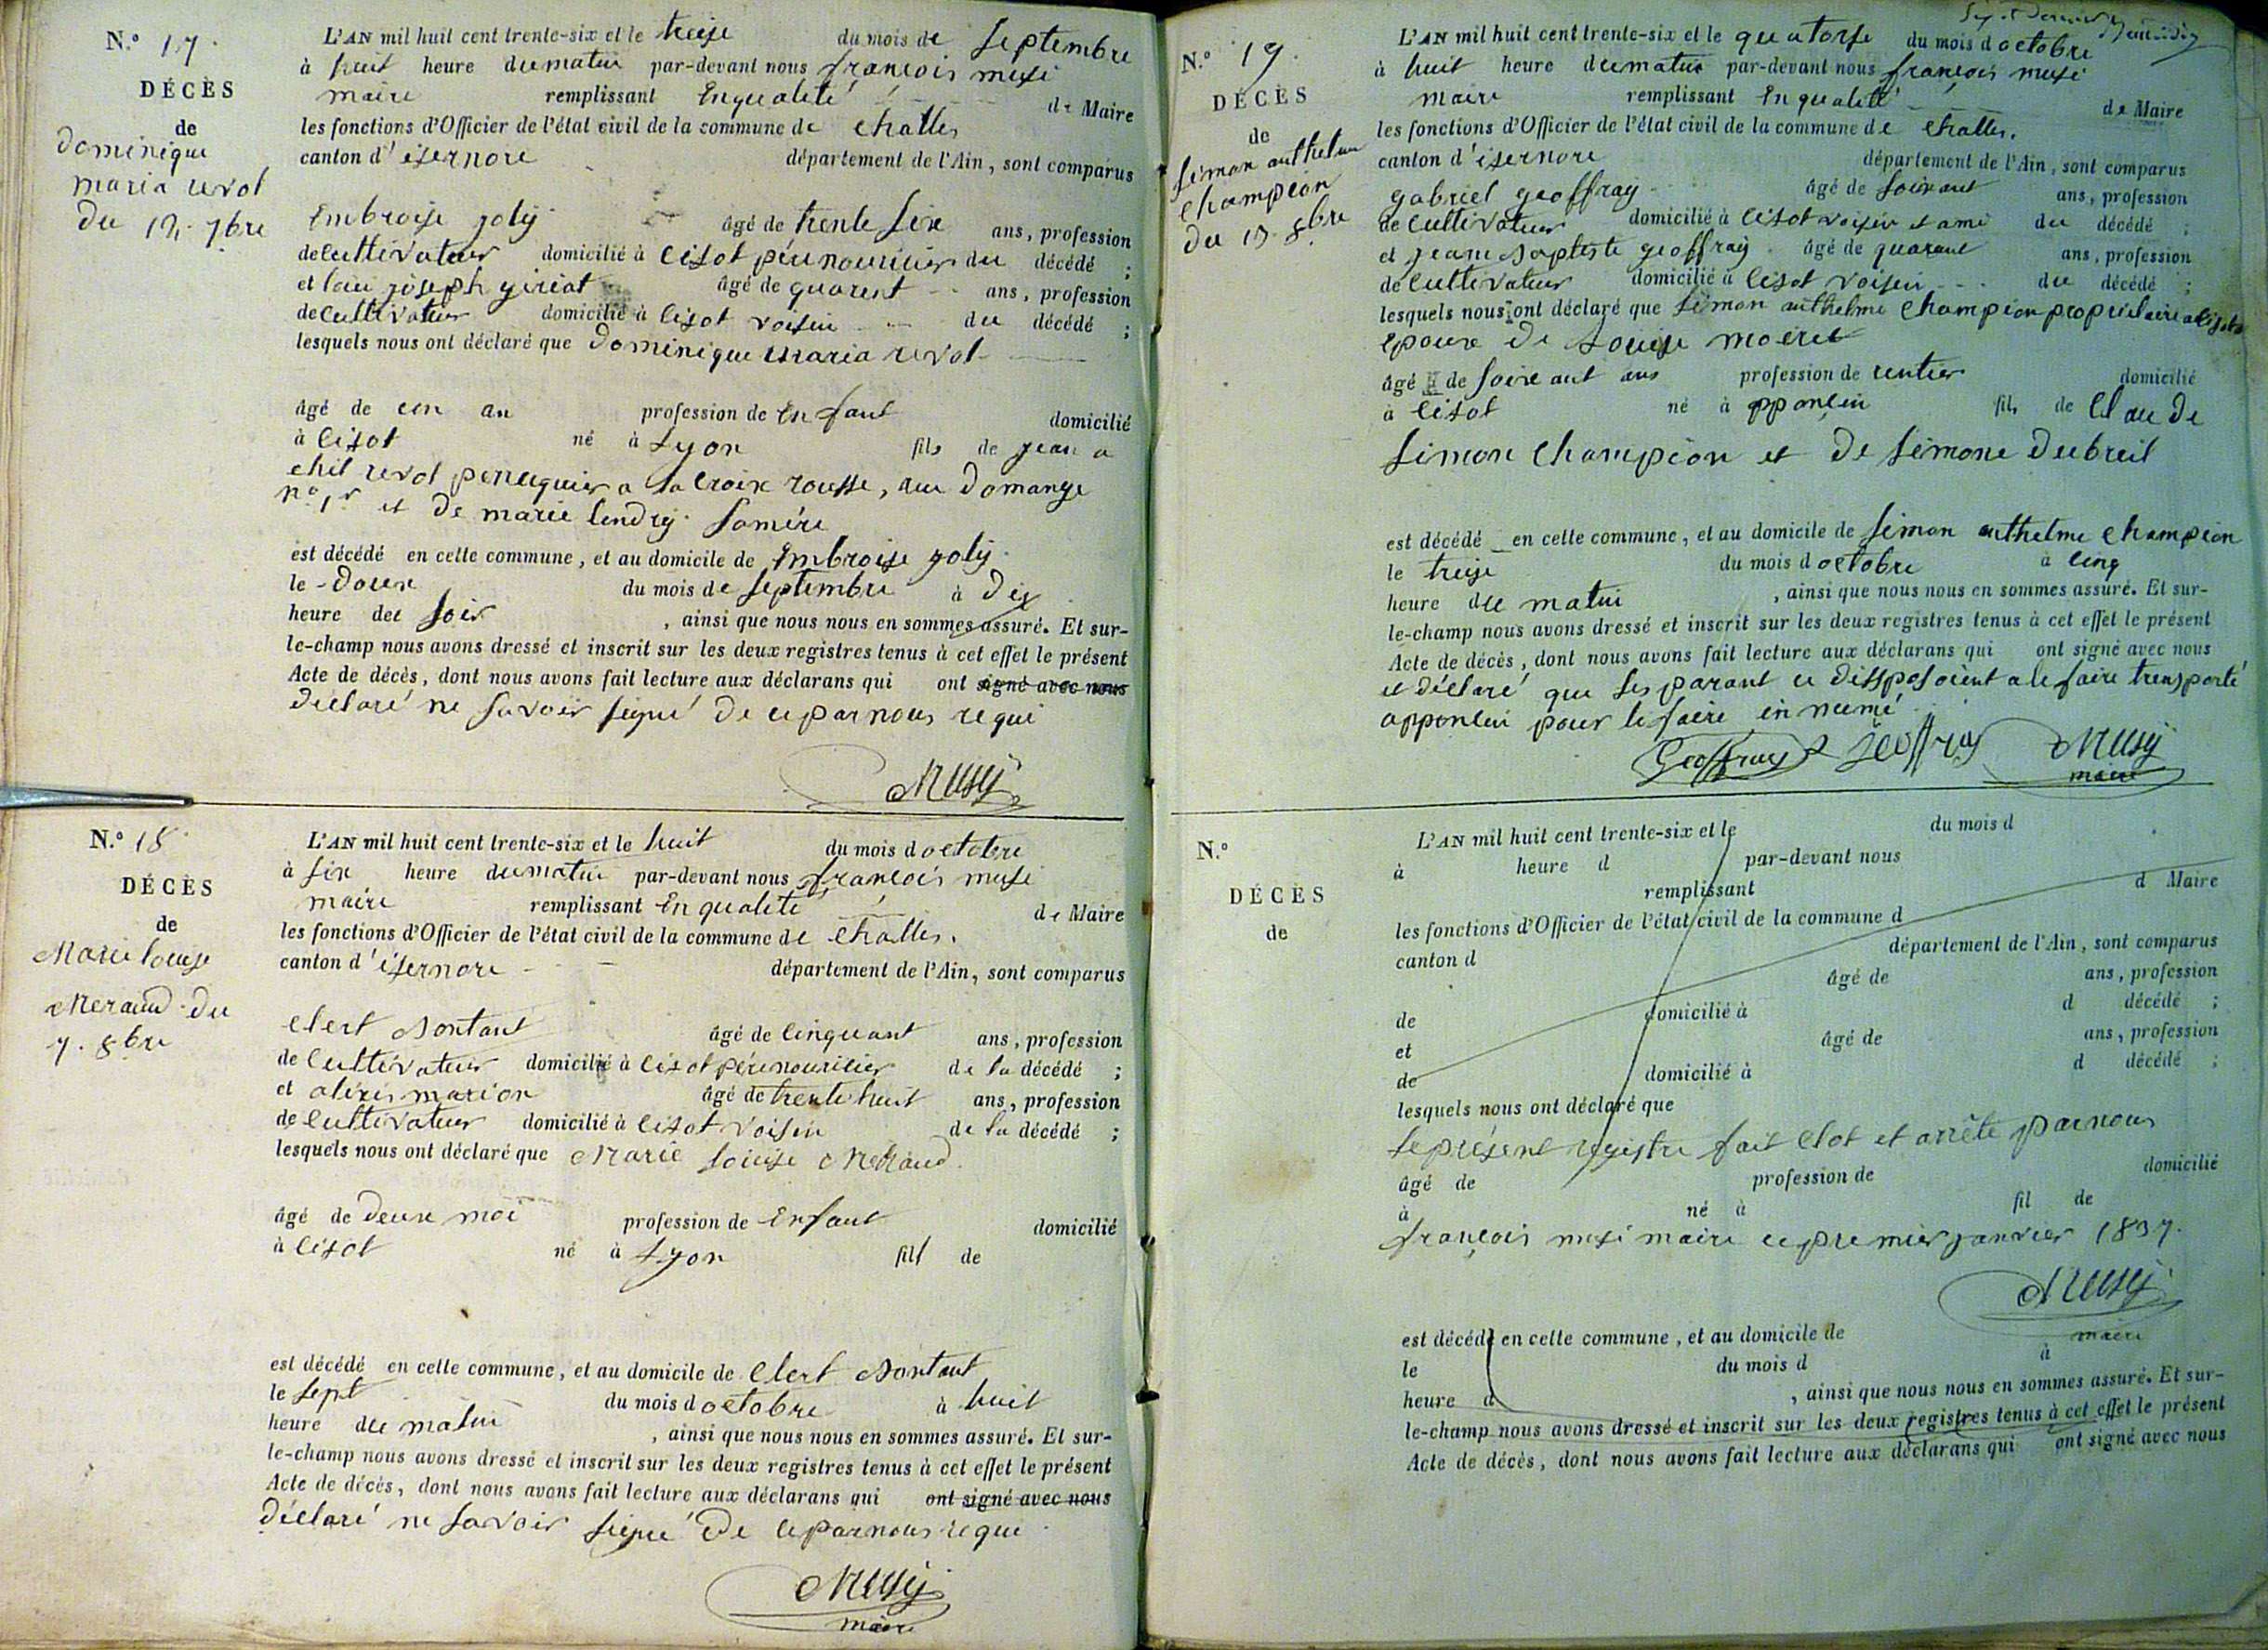 N.° 17.
DÉCÈS
de
dominique
maria revol
du 12. 7bre
L'AN mil huit cent trente-six et le treise du mois de septembre
à huit heure du matin par-devant nous françois musi
maire remplissant En qualité de Maire
les fonctions d'Officier de l'état civil de la commune de challes
canton d'isernore département de l'Ain, sont comparus
Embroise joly âgé de trente six ans, profession
de cultivateur domicilié à cisot pére nouricier du décédé ;
et loui joseph giriat âgé de quarent ans, profession
de cultivateur domicilié à cisot voisin du décédé ;
lesquels nous ont déclaré que dominique maria revol
âgé de un an profession de Enfant domicilié
à cisot né à Lyon fils de jean a
chil revol peruquier a la croix rousse, rue domange
n° 1r et de marie lendry. sa mére
est décédé en cette commune, et au domicile de Embroise joly.
le douse du mois de septembre à dix
heure du soir , ainsi que nous nous en sommes assuré. Et sur-
le-champ nous avons dressé et inscrit sur les deux registres tenus à cet effet le présent
Acte de décès, dont nous avons fait lecture aux déclarans qui ont signé avec nous
déclaré ne savoir signé de ce par nous requi
Musy
N.° 18
DÉCÈS
de
Marie louise
Meraud du
7. 8bre
L'AN mil huit cent trente-six et le huit du mois d octobre
à six heure du matin par-devant nous françois musi
maire remplissant En qualité de Maire
les fonctions d'Officier de l'état civil de la commune de challes.
canton d'isernore département de l'Ain, sont comparus
Clert Montant âgé de cinquant ans, profession
de cultivateur domicilié à cisot pére nouricier de la décédé ;
et alexis marion âgé de trente huit ans, profession
de cultivateur domicilié à cisot voisin de la décédé ;
lesquels nous ont déclaré que Marie louise Meraud.
âgé de deux moi profession de Enfant domicilié
à cisot né à Lyon fill de
est décédé en cette commune, et au domicile de Clert Montant
le sept du mois d octobre à huit
heure du matin , ainsi que nous nous en sommes assuré. Et sur-
le-champ nous avons dressé et inscrit sur les deux registres tenus à cet effet le présent
Acte de décès, dont nous avons fait lecture aux déclarans qui ont signé avec nous
déclaré ne savoir signé de ce par nous requi
Musy
maire
N.° 19.
DÉCÈS
de
simon anthelme
champion
du 13. 8bre
L'AN mil huit cent trente-six et le quatorse du mois d octobre
à huit heure du matin par-devant nous françois musi
maire remplissant En qualité de Maire
les fonctions d'Officier de l'état civil de la commune de challes.
canton d'isernore département de l'Ain, sont comparus
gabriel geoffray âgé de soixant ans, profession
de cultivateur domicilié à cisot voisin et ami du décédé ;
et jean baptiste geoffray âgé de quarant ans, profession
de cultivateur domicilié à cisot voisin du décédé ;
lesquels nous ont déclaré que simon anthelme champion propriétaire a cisot
epoux de Louise moeret
âgé de soixant ans profession de rentier domicilié
à cisot né à apponcin fils de Claude
simon champion et de simone dubreil
est décédé en cette commune, et au domicile de simon anthelme champion
le treise du mois d octobre à cinq
heure du matin , ainsi que nous nous en sommes assuré. Et sur-
le-champ nous avons dressé et inscrit sur les deux registres tenus à cet effet le présent
Acte de décès, dont nous avons fait lecture aux déclarans qui ont signé avec nous
et déclaré que ses parant ce dissposoient a le faire transporté
apponcin pour le faire innumé
Geoffray Geoffray Musy
maire
N.°
DÉCÈS
de
L'AN mil huit cent trente-six et le du mois d
à heure d par-devant nous
remplissant d Maire
les fonctions d'Officier de l'état civil de la commune d
canton d département de l'Ain, sont comparus
âgé de ans, profession
de domicilié à d décédé ;
et âgé de ans, profession
de domicilié à d décédé ;
lesquels nous ont déclaré que
le présent registre fait clot et arrête par nous
âgé de profession de domicilié
à né à fil de
françois musi maire ce premier janvier 1837.
Musy
maire
est décédé en cette commune, et au domicile de
le du mois d à
heure d , ainsi que nous nous en sommes assuré. Et sur-
le-champ nous avons dressé et inscrit sur les deux registres tenus à cet effet le présent
Acte de décès, dont nous avons fait lecture aux déclarans qui ont signé avec nous